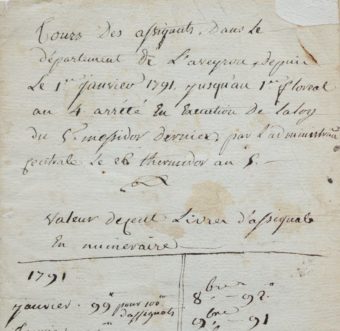 Cours des assignats, dans le
départment de L'aveyron, depuis
Le 1er janvier 1791. jusqu'au 1er floreal
au 4 arrêté En Execution De Laloy
du 5e messidor dernier, par L'administraon
centrale Le 26 thermidor au 5.—
Valeur decent Livres d'assignats
En numeraire
1791
janvier. 99# pour 100# d'assignats
8bre — 92#
9bre 91